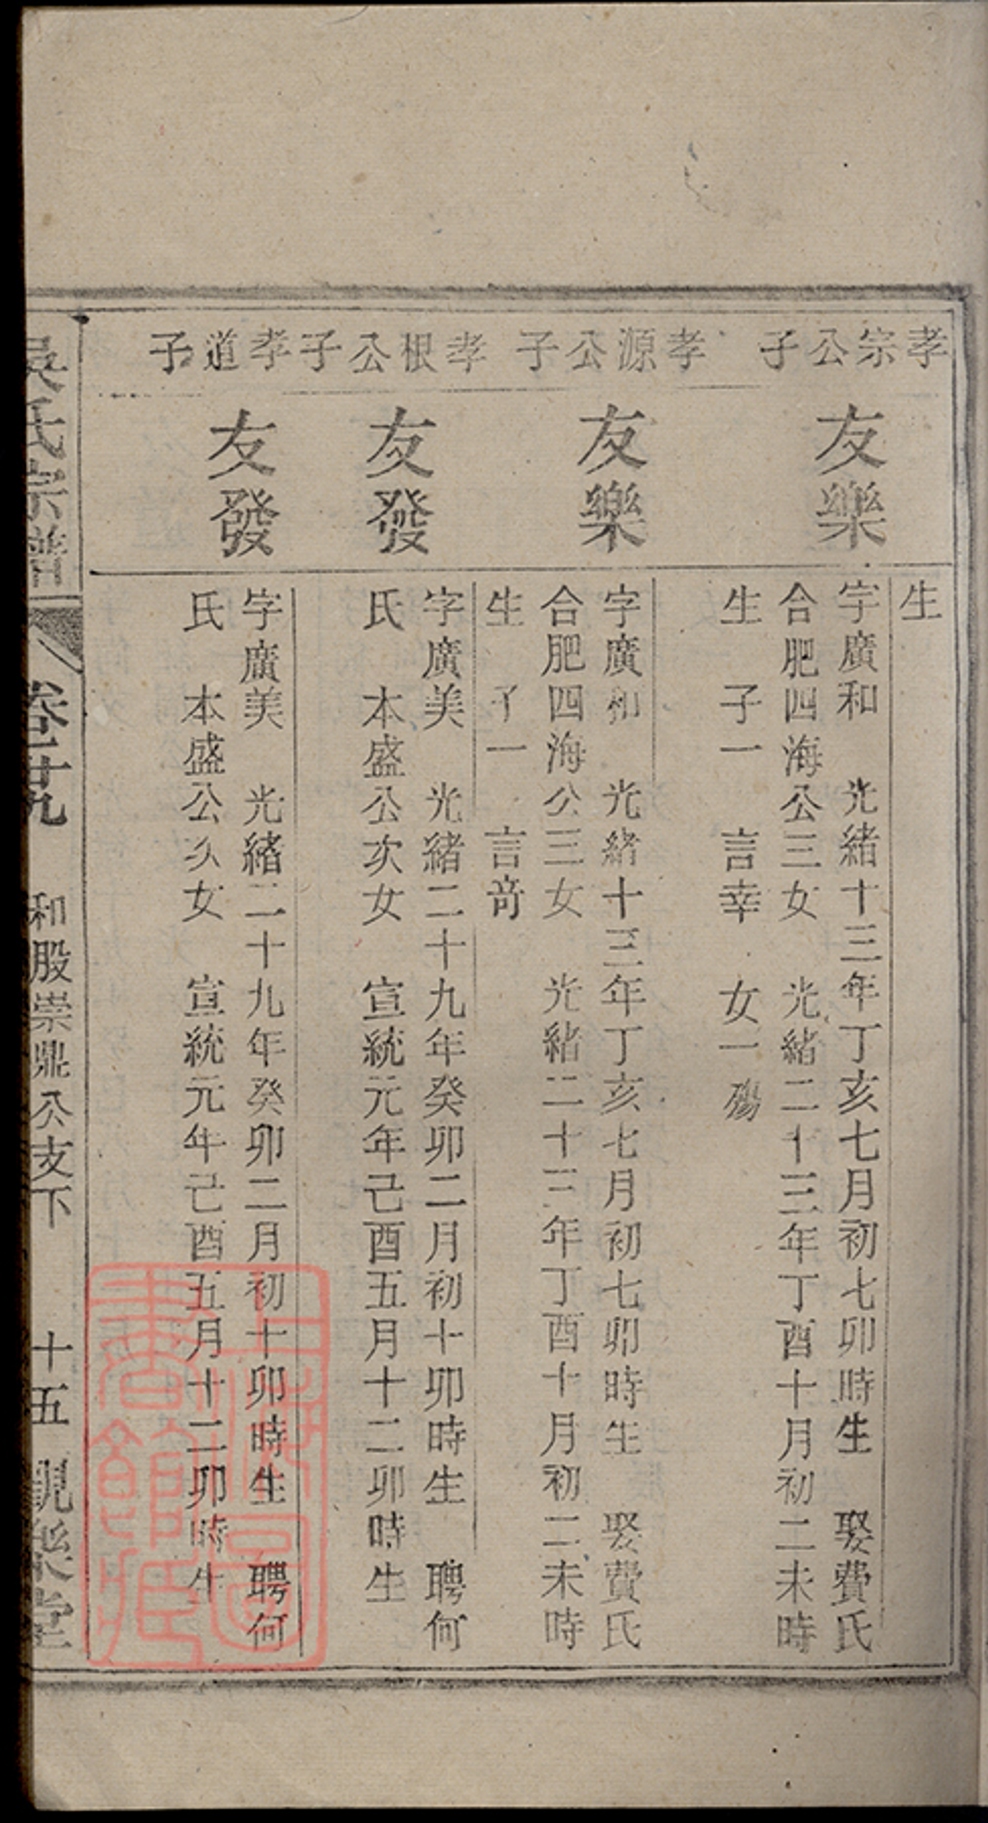 生
孝宗公子
友樂
字廣和 光緒十三年丁亥七月初七卯時生 娶費氏
合肥四海公三女 光緒二十三年丁酉十月初二未時
生 子一 言幸 女一 殤
孝源公子
友樂
字廣和 光緒十三年丁亥七月初七卯時生 娶費氏
合肥四海公三女 光緒二十三年丁酉十月初二未時
生 子一 言奇
孝根公子
友發
字廣美 光緒二十九年癸卯二月初十卯時生 聘何
氏 本盛公次女 宣統元年己酉五月十二卯時生
孝道子
友發
字廣美 光緒二十九年癸卯二月初十卯時生 聘何
氏 本盛公次女 宣統元年己酉五月十二卯時生
吳氏宗譜 卷廿九 和股崇鼎公支下 十五 親樂堂
上海圖書館藏